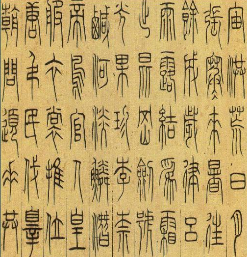 宙洪荒日月
張寒來暑往
餘成歲律呂
雨露結為霜
出昆岡劍號
光果珍李柰
鹹河淡鱗潛
帝鳥官人皇
服衣裳推位
唐弔民伐辠
朝問道垂拱